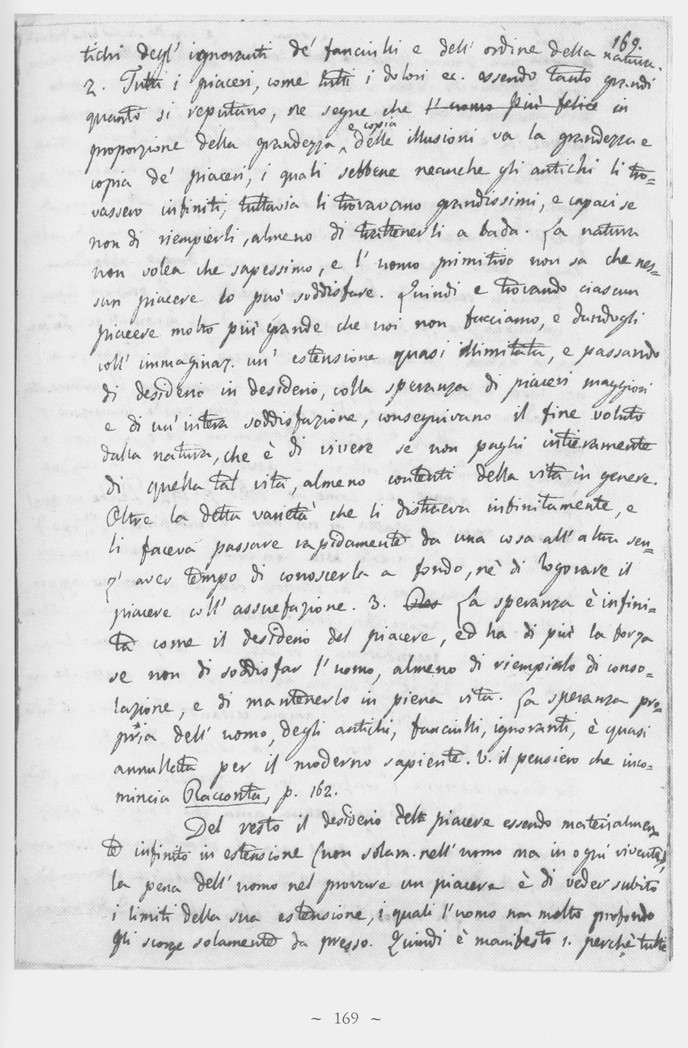 169.
tichi degl' ignoranti de' fanciulli e dell' ordine della natura.
2. Tutti i piaceri, come tutti i dolori ec. essendo tanto grandi
quanto si reputano, ne segue che l' uomo più felice in
proporzione della grandezza e copia delle illusioni va la grandezza e
copia de' piaceri, i quali sebbene neanche gli antichi li tro-
vassero infiniti, tuttavia li trovavano grandissimi, e capaci se
non di riempierli, almeno di trattenerli a bada. La natura
non volea che sapessimo, e l' uomo primitivo non sa che nes-
sun piacere lo può soddisfare. Quindi e trovando ciascun
piacere molto più grande che noi non facciamo, e dandogli
coll' immaginaz. un' estensione quasi illimitata, e passando
di desiderio in desiderio, colla speranza di piaceri maggiori
e di un' intera soddisfazione, conseguivano il fine voluto
dalla natura, che è di vivere se non paghi intieramente
di quella tal vita, almeno contenti della vita in genere.
Oltre la detta varietà che li distraeva infinitamente, e
li faceva passare rapidamente da una cosa all' altra sen-
z' aver tempo di conoscerla a fondo, nè di logorare il
piacere coll' assuefazione. 3. La speranza è infini-
ta come il desiderio del piacere, ed ha di più la forza
se non di soddisfar l' uomo, almeno di riempierlo di conso-
lazione, e di mantenerlo in piena vita. La speranza pro-
pria dell' uomo, degli antichi, fanciulli, ignoranti, è quasi
annullata per il moderno sapiente. V. il pensiero che inco-
mincia Racconta, p. 162.
Del resto il desiderio del piacere essendo materialmen-
te infinito in estensione (non solam. nell' uomo ma in ogni vivente)
la pena dell' uomo nel provare un piacere è di veder subito
i limiti della sua estensione, i quali l' uomo non molto profondo
gli scorge solamente da presso. Quindi è manifesto 1. perchè tutti
~ 169 ~